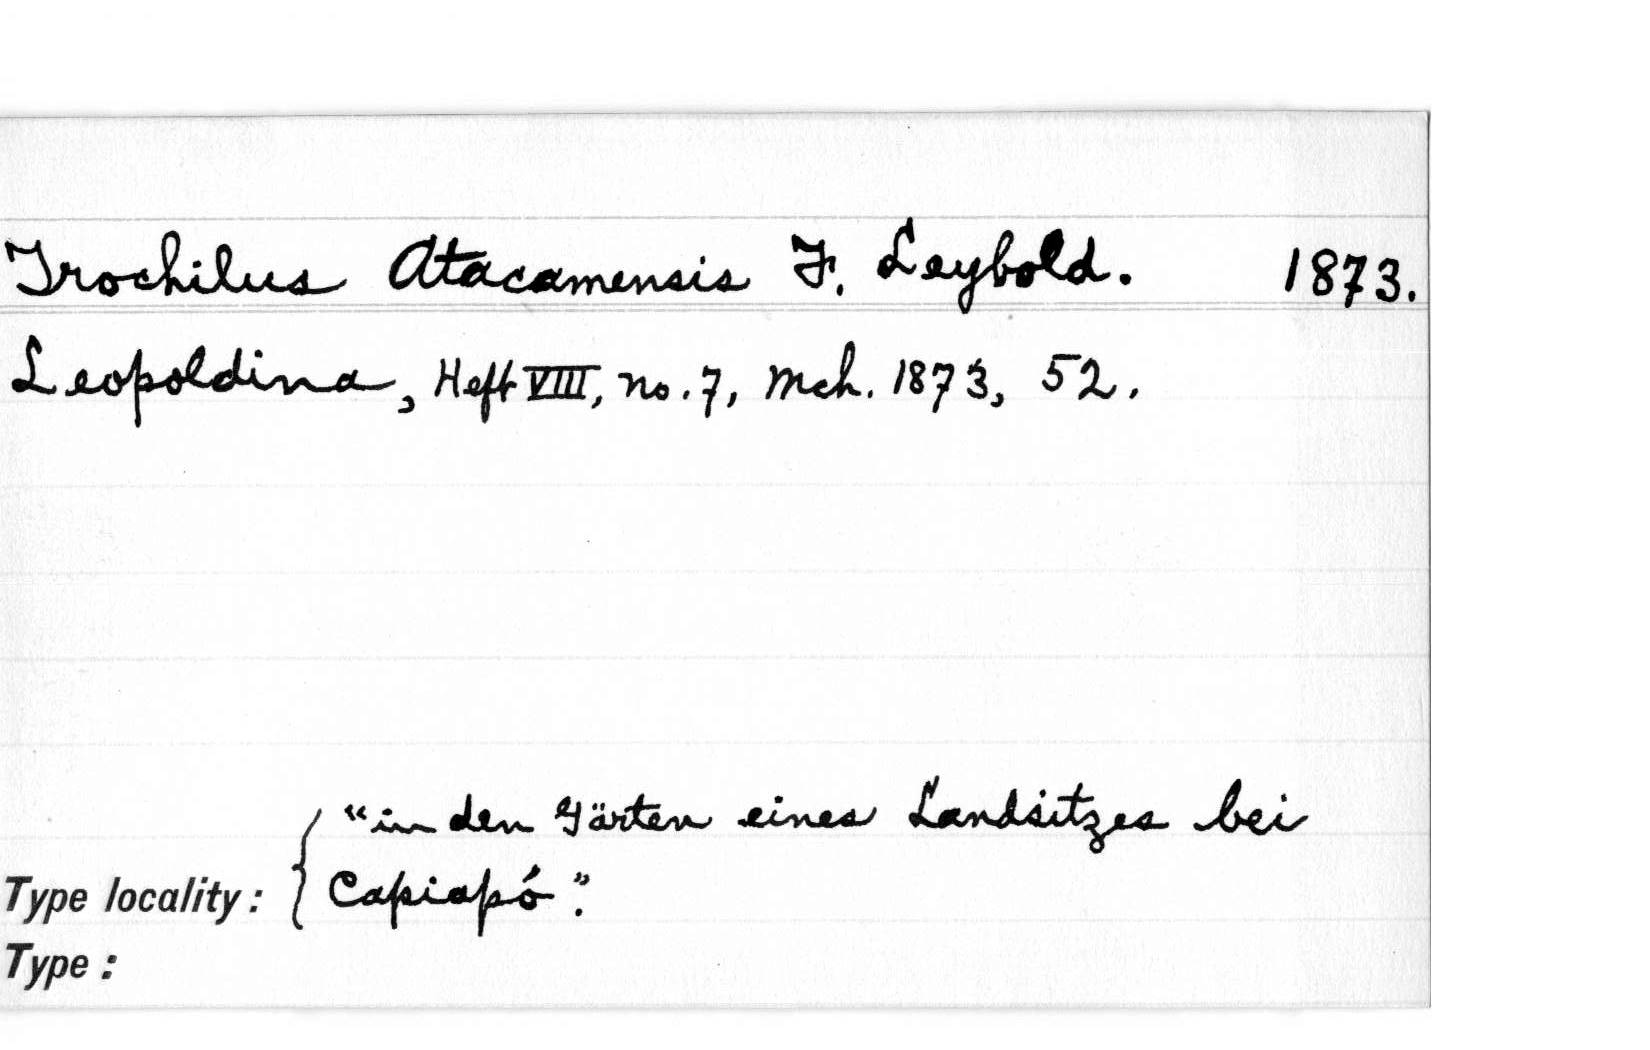 Trochilus Atacamensis F. Leybold. 1873.
Leopoldina, Heft VIII, no. 7, Mch. 1873, 52.
"in den Gärten eines Landsitzes bei
Type locality: { Capiapó".
Type: